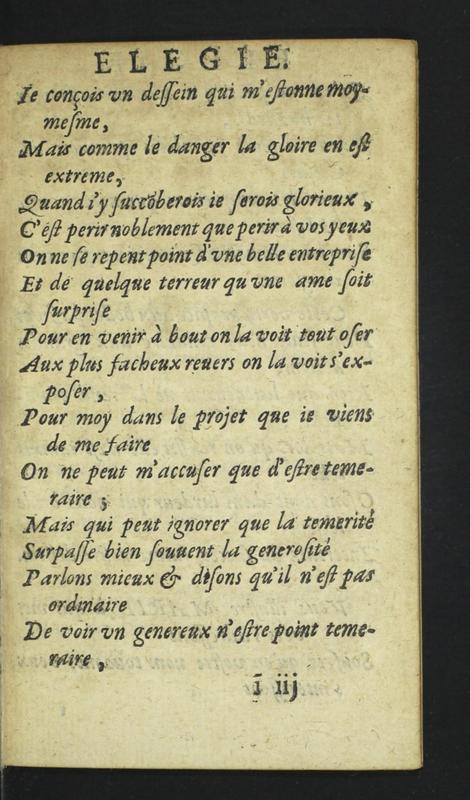 ELEGIE.
Ie conçois vn deſſein qui m'eſtonne moy-
meſme,
Mais comme le danger la gloire en eſt
extreme,
Quand i'y ſuccõberois ie ſerois glorieux,
C'eſt perir noblement que perir à vos yeux
On ne ſe repent point d'vne belle entrepriſe
Et de quelque terreur qu vne ame ſoit
ſurpriſe
Pour en venir à bout on la voit tout oſer
Aux plus facheux reuers on la voit s'ex-
poſer,
Pour moy dans le projet que ie viens
de me faire
On ne peut m'accuſer que d'eſtre teme-
raire ;
Mais qui peut ignorer que la temerité
Surpaſſe bien ſouuent la generoſité
Parlons mieux & diſons qu'il n'eſt pas
ordinaire
De voir vn genereux n'eſtre point teme-
raire,
ĩ iij